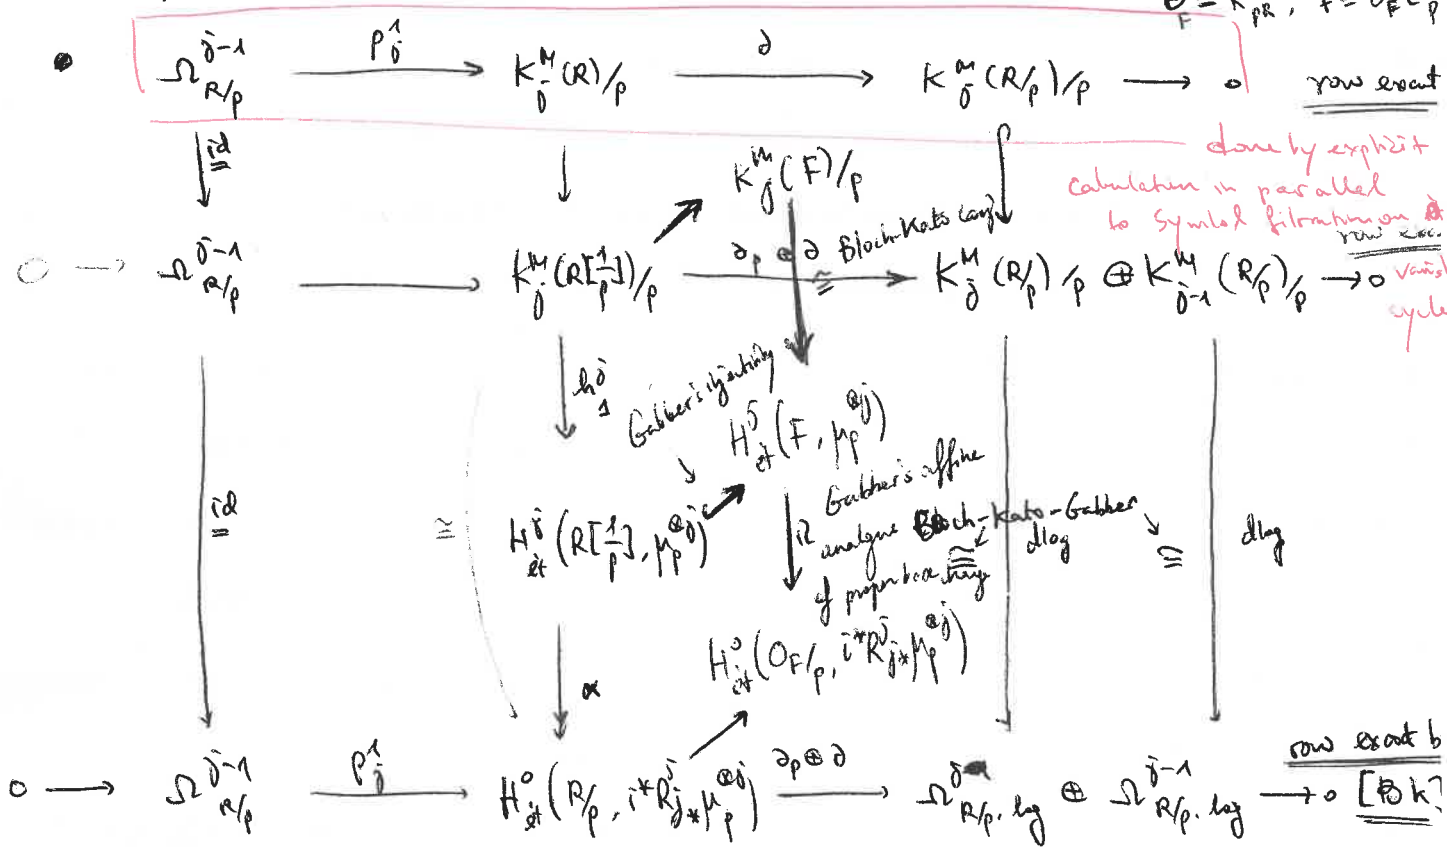 F = O_F [1/p]
• Ω^{j-1}_{R/p} —ρ^1_j→ K^M_j(R)/p —∂→ K^M_j(R/p)/p → 0 row exact
id
done by explicit
calculation in parallel
to symbol filtration on
K^M_j(F)/p
0 → Ω^{j-1}_{R/p} → K^M_j(R[1/p])/p —∂_p ⊕ ∂→ K^M_j(R/p)/p ⊕ K^M_{j-1}(R/p)/p → 0
≅ Bloch-Kato conj
h^j_1
Gabber's injectivity
H^j_{ét}(F, μ_p^{⊗j})
id
≅
H^j_{ét}(R[1/p], μ_p^{⊗j})
Gabber's affine
analogue
of proper base change
Bloch-Kato-Gabber
≅ dlog ≅ dlog
H^0_{ét}(O_F/p, i^*R^j j_* μ_p^{⊗j})
α
0 → Ω^{j-1}_{R/p} —ρ^1_j→ H^0_{ét}(R/p, i^*R^j j_* μ_p^{⊗j}) —∂_p ⊕ ∂→ Ω^j_{R/p, log} ⊕ Ω^{j-1}_{R/p, log} → 0
row exact b
[BK]